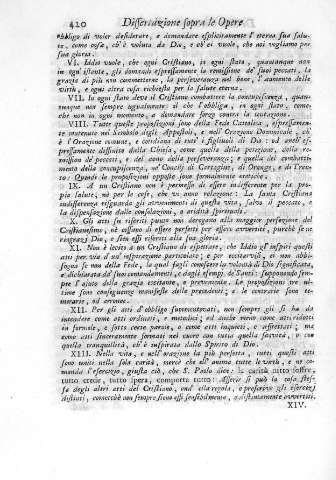 420 Dissertazione sopra le Opere
obbligo di voler desiderare, e domandare esplicitamente l'eterna sua salu-
te, come cosa, ch'è voluta da Dio, e ch'ei vuole, che noi vogliamo per
sua gloria.
VI. Iddio vuole, che ogni Cristiano, in ogni stato, quantunque non
in ogn'istante, gli domandi espressamente la remissione de' suoi peccati, la
grazia di più non commetterne, la perseveranza nel bene, l'aumento delle
virtù, e ogni altra cosa richiesta per la salute eterna.
VII. In ogni stato deve il Cristiano combattere la concupiscenza, quan-
tunque non sempre ugualmente: il che l'obbliga, in ogni stato, come-
che non in ogni momento, a domandare forza contra le tentazioni.
VIII. Tutte queste proposizioni sono della Fede Cattolica, espressamen-
te contenute nel Simbolo degli Appostoli, e nell'Orazione Domenicale, ch'
è l'Orazione comune, e cotidiana di tutt'i figliuoli di Dio: od anche es-
pressamente diffinite dalla Chiesa, come quella della petizione, della re-
missione de' peccati, e del dono della perseveranza; e quella del combatti-
mento della concupiscenza, ne' Concilj di Cartagine, di Oranges, e di Tren-
to: Quindi le proposizioni opposte sono formalmente eretiche.
IX. A un Cristiano non è permesso di essere indifferente per la pro-
pia salute, nè per le cose, che vi hanno relazione. La santa Cristiana
indifferenza risguarda gli avvenimenti di questa vita, salvo il peccato, e
la dispensazione delle consolazioni, o aridità spirituali.
X. Gli atti su riferiti punto non derogano alla maggior perfezione del
Cristianesimo, nè cessano di essere perfetti per essere avvertiti, purchè se ne
ringrazj Dio, e sien essi riferiti alla sua gloria.
XI. Non è lecito al Cristiano di aspettare, che Iddio gl'inspiri questi
atti per via d'un'inspirazione particolare; e per eccitarvisi, ei non abbi-
sogna se non della Fede, la qual fagli conoscere la volontà di Dio significata,
e dichiarata da' suoi comandamenti, e dagli esempj de' Santi: supponendo sem-
pre l'ajuto della grazia eccitante, e preveniente. Le proposizioni tre ul-
time sono conseguenze manifeste delle precedenti; e le contrarie sono te-
merarie, ed erronee.
XII. Per gli atti d'obbligo soprammentovati, non sempre gli si ha da
intendere come atti ordinati, e metodici; ed anche meno come atti ridotti
in formole, e sotto certe parole, o come atti inquieti, e affrettati; ma
come atti sinceramente formati nel cuore con tutta quella soavità, e con
quella tranquillità, ch'è inspirata dallo Spirito di Dio.
XIII. Nella vita, e nell'orazione la più perfetta, tutti questi atti
sono uniti nella sola carità, mercè che ell'anima tutte le virtù, e ne co-
manda l'esercizio, giusta ciò, che S. Paolo dice: la carità tutto soffre,
tutto crede, tutto spera, comporta tutto: Asserir si può la cosa stes-
sa degli altri atti del Cristiano, ond'ella regola, e prescrive gli esercizj
distinti, comecchè non sempre sieno essi sensibilmente, e distintamente avvertiti.
XIV.